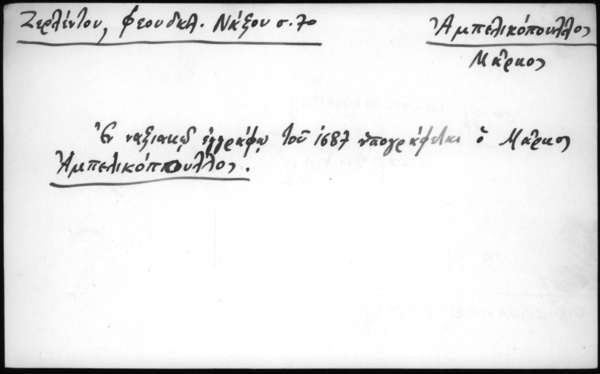 Ζερλέντου, Φεουδαλ. Νάξου σ. 70
Ἀμπελικόπουλλος
Μᾶρκος
Ἐν ναξιακῷ ἐγγράφῳ τοῦ 1687 ὑπογράφεται ὁ Μᾶρκος
Ἀμπελικόππουλλος.